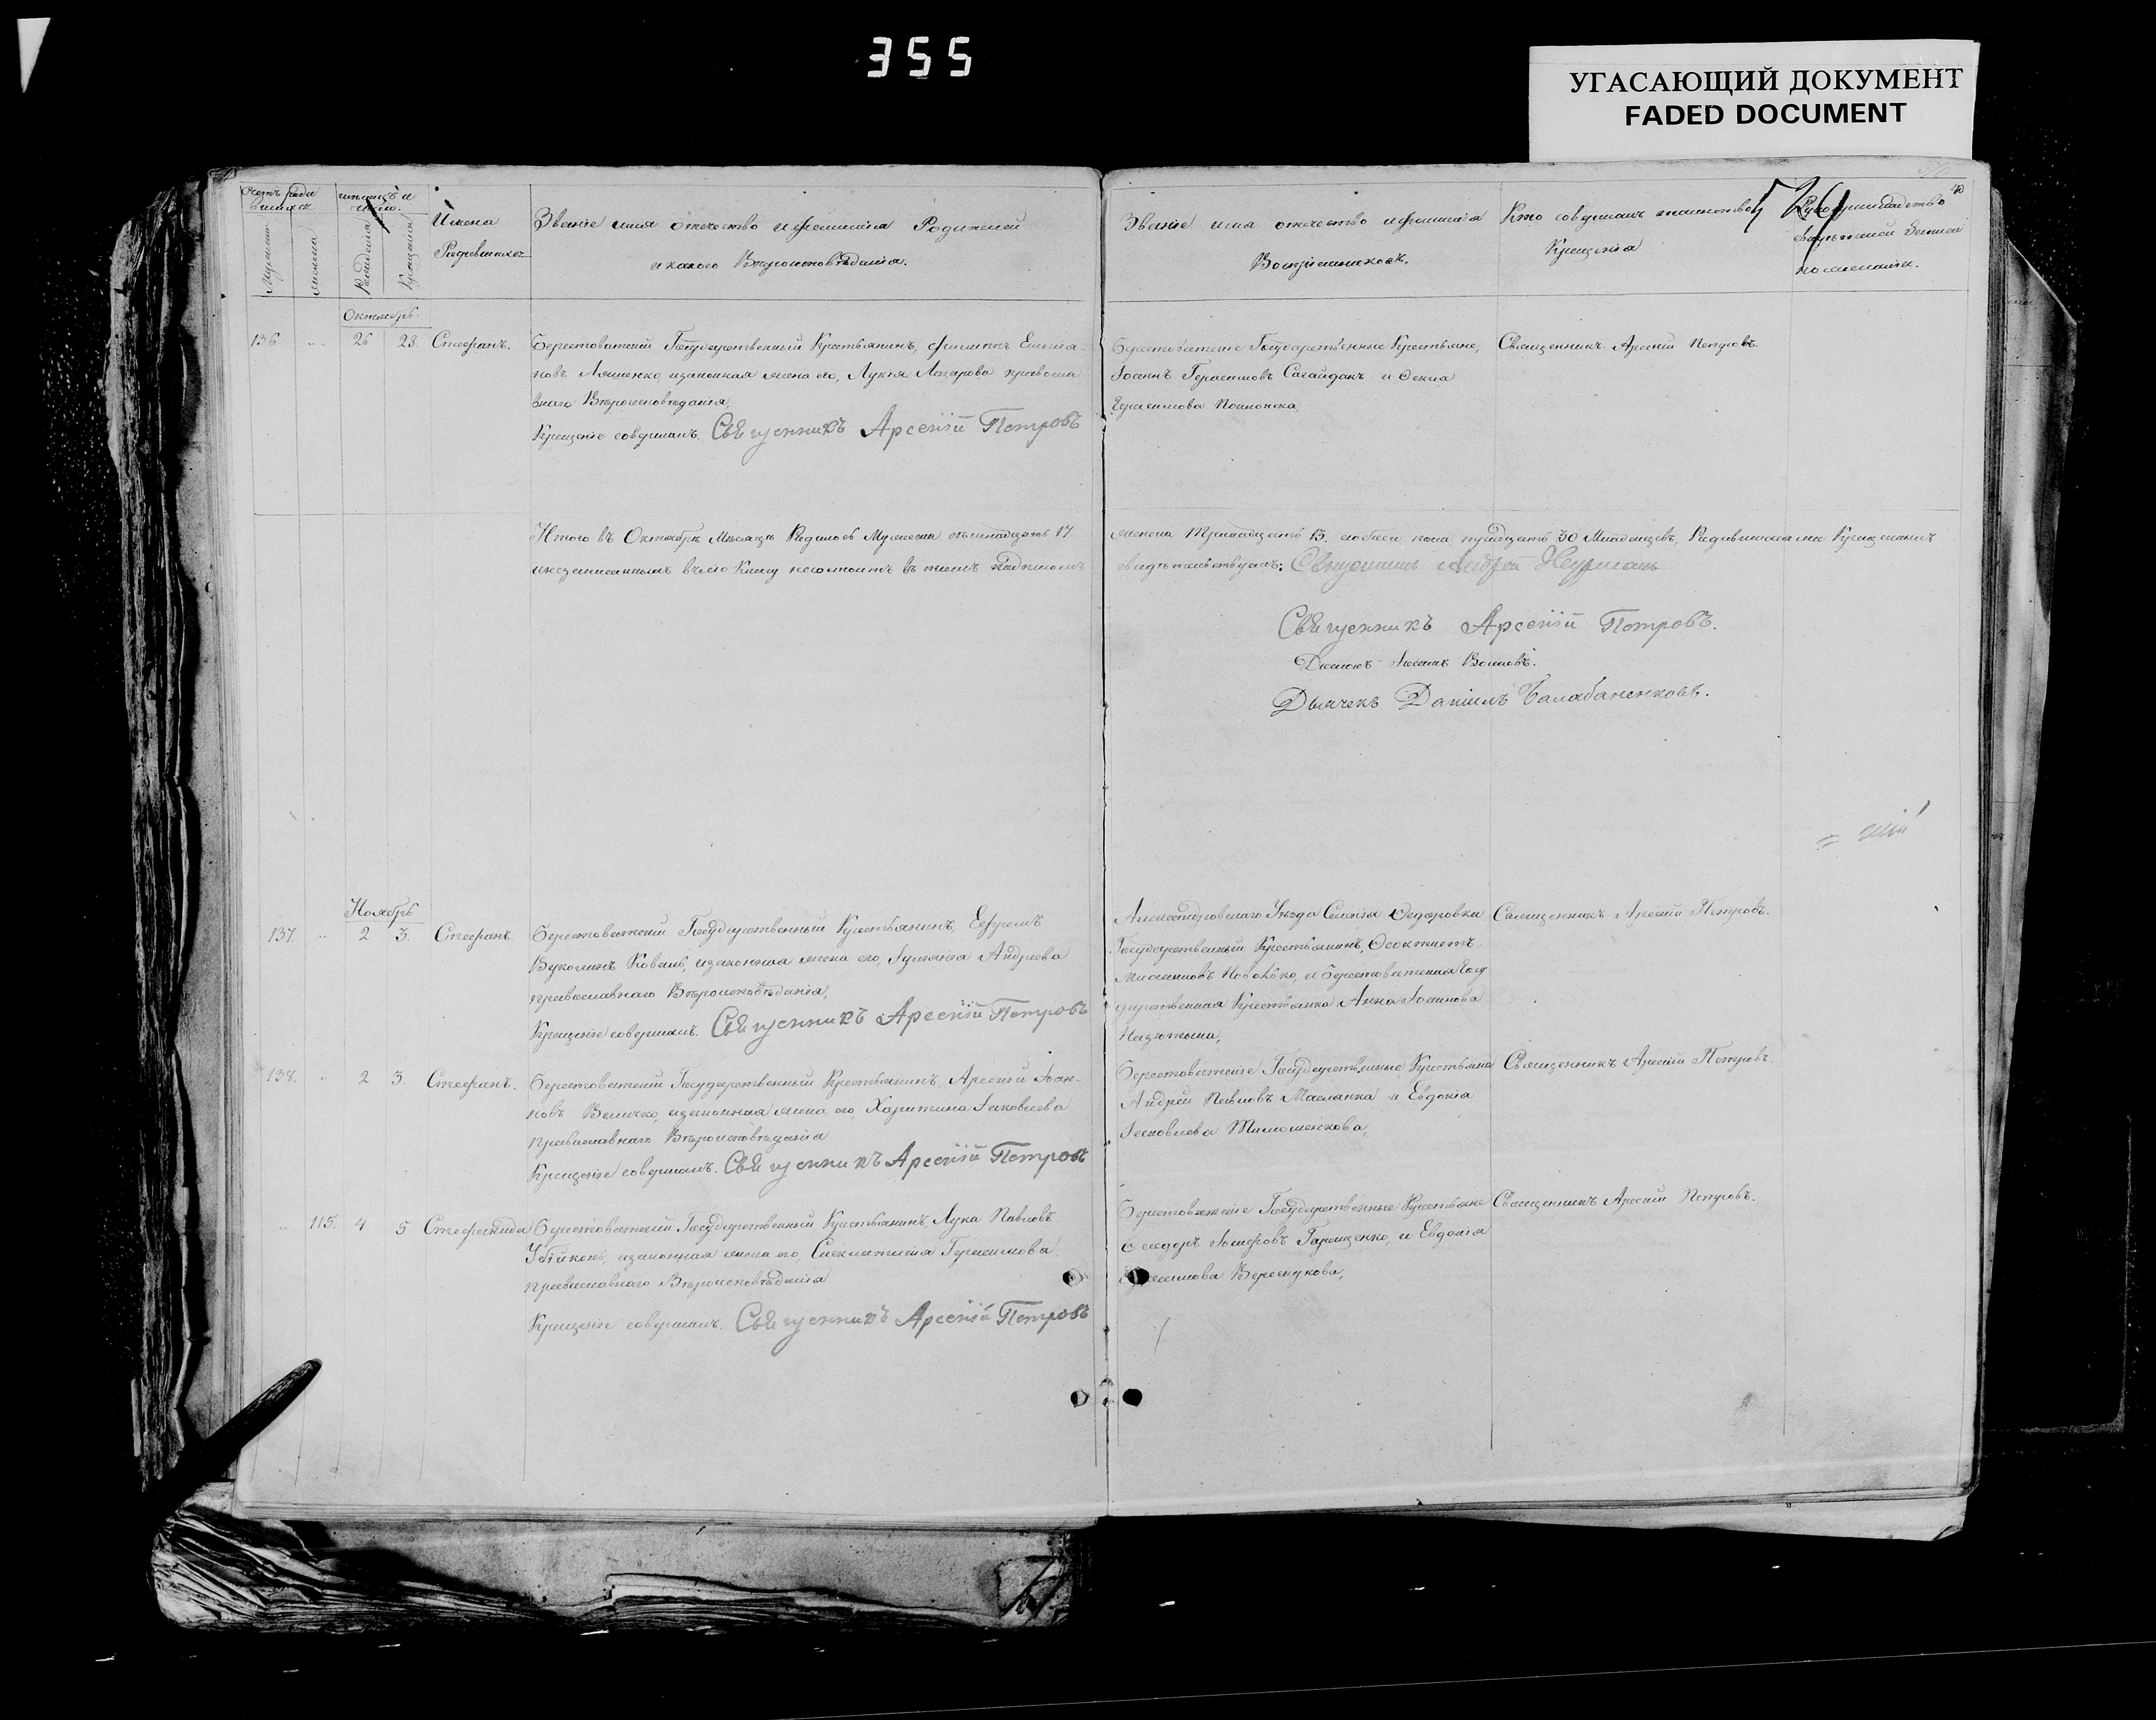 355
УГАСАЮЩИЙ ДОКУМЕНТ
FADED DOCUMENT
526
Счетъ роди
вшихся
Мужеска
женска
Рожденія
Крещенія
Имена
Родившихся
Званіе имя отечество и фамилія Родителей
и какого Вѣроисповѣданія.
Званіе имя отечество и фамилія
Воспріемниковъ.
Кто совершалъ таинство
Крещенія
Рукоприкладство
свидѣтелей записи
по желанію.
Октябрь
136 26 28 Стефанъ.
Берестоватскій Государственный Крестьянинъ, Филиппъ Емилія-
новъ Ляшенко, изаконная жена его, Лукія Лазарова православ
наго Вѣроисповѣданія,
Крещеніе совершалъ. Священникъ Арсеній Петровъ
Берестоватскіе Государственные Крестьяне,
Іоаннъ Герасимовъ Сагайдакъ и Фекла
Герасимова
Священникъ Арсеній Петровъ
Итого въ Октябрѣ Мѣсяцѣ Родилось Мужеска семнадцать 17
женска Тринадцать 13. обоего пола тридцать 30 Младенцевъ,
свидѣтельствуемъ: Священникъ Андрей
Священникъ Арсеній Петровъ.
Діаконъ Іоаннъ Волковъ.
Дьячекъ Даніилъ Балабаненковъ.
Ноябрь
137. 2 3. Стефанъ.
Берестоватскій Государственный Крестьянинъ, Ефремъ
Вуколинъ Коваль, изаконная жена его, Іуліанія Андреева
православнаго Вѣроисповѣданія,
Крещеніе совершалъ. Священникъ Арсеній Петровъ
Александровскаго Уѣзда Селенія Федоровки
Государственный Крестьянинъ, Феоктистъ
и Берестоватская Госу
дарственная Крестьянка Анна Іоаннова
Священникъ Арсеній Петровъ.
138. 2 3. Стефанъ.
Берестоватскій Государственный Крестьянинъ, Арсеній Іоан-
новъ Величко, изаконная жена его, Харитина Іаковлева
православнаго Вѣроисповѣданія
Крещеніе совершалъ. Священникъ Арсеній Петровъ
Берестоватскіе Государственные Крестьяне
Андрей Павловъ Маслянка и Евдокія
Іаковлева Тимошенкова,
Священникъ Арсеній Петровъ.
115. 4 5 Стефанида
Берестоватскій Государственный Крестьянинъ, Лука Павловъ
изаконная жена его, Герасимова
православнаго Вѣроисповѣданія
Крещеніе совершалъ. Священникъ Арсеній Петровъ
Берестоватскіе Государственные Крестьяне
Феодоръ Іосифовъ Геращенко, и Евдокія
Священникъ Арсеній Петровъ.